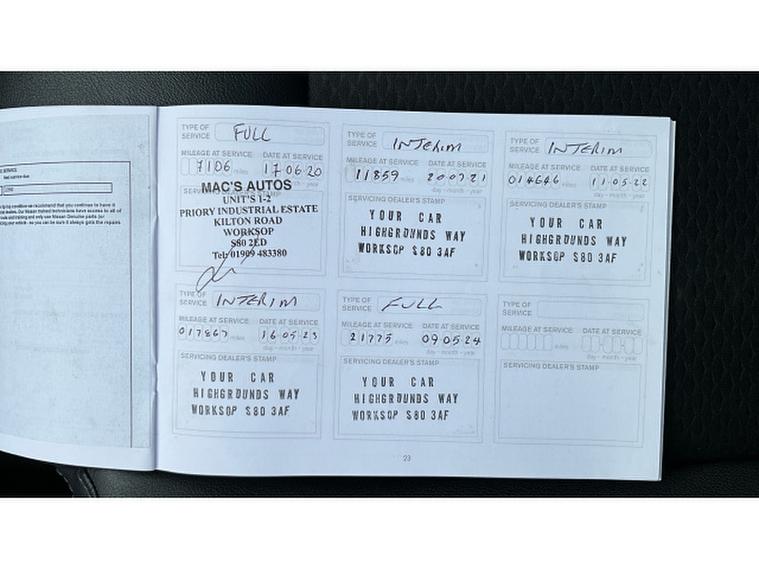 TYPE OF SERVICE FULL
MILEAGE AT SERVICE DATE AT SERVICE
7106 miles 17 06 20
day - month - year
MAC'S AUTOS
UNIT'S 1-2
PRIORY INDUSTRIAL ESTATE
KILTON ROAD
WORKSOP
S80 2ED
Tel: 01909 483380
TYPE OF SERVICE INTERIM
MILEAGE AT SERVICE DATE AT SERVICE
11859 miles 20 07 21
day - month - year
SERVICING DEALER'S STAMP
YOUR CAR
HIGHGROUNDS WAY
WORKSOP S80 3AF
TYPE OF SERVICE INTERIM
MILEAGE AT SERVICE DATE AT SERVICE
014646 miles 11 05 22
day - month - year
SERVICING DEALER'S STAMP
YOUR CAR
HIGHGROUNDS WAY
WORKSOP S80 3AF
TYPE OF SERVICE INTERIM
MILEAGE AT SERVICE DATE AT SERVICE
017867 miles 16 05 23
day - month - year
SERVICING DEALER'S STAMP
YOUR CAR
HIGHGROUNDS WAY
WORKSOP S80 3AF
TYPE OF SERVICE FULL
MILEAGE AT SERVICE DATE AT SERVICE
21775 miles 09 05 24
day - month - year
SERVICING DEALER'S STAMP
YOUR CAR
HIGHGROUNDS WAY
WORKSOP S80 3AF
TYPE OF SERVICE
MILEAGE AT SERVICE DATE AT SERVICE
miles
day - month - year
SERVICING DEALER'S STAMP
23